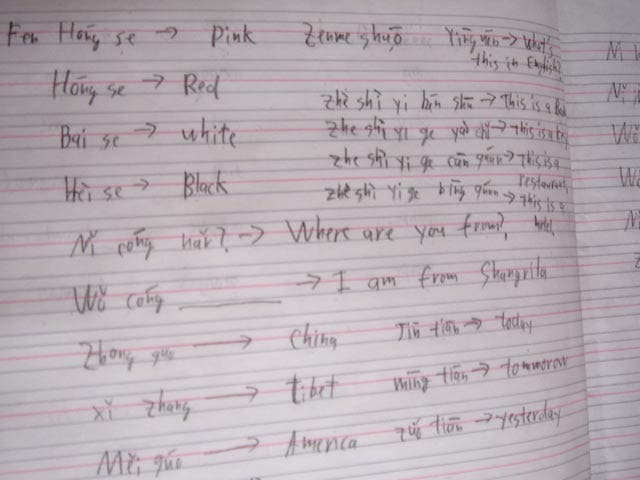 Fen Hóng se → pink Zenme shuō Yīng wén → What's
this in English?
Hóng se → Red
zhè shì yi běn shū → This is a
Bai se → white zhe shì yi ge yào chí → this is a key
zhe shì yi ge cān guǎn → This is a
restaurant,
Hēi se → Black zhè shì yi ge bīng guǎn → this is a
hotel.
Nǐ cóng nǎr? → Where are you from?
Wǒ cóng ______ → I am from Shangrila
Zhong guo → China Jīn tiān → today
xī zhang → tibet míng tiān → tommorow
Měi guó → America zuó tiān → yesterday